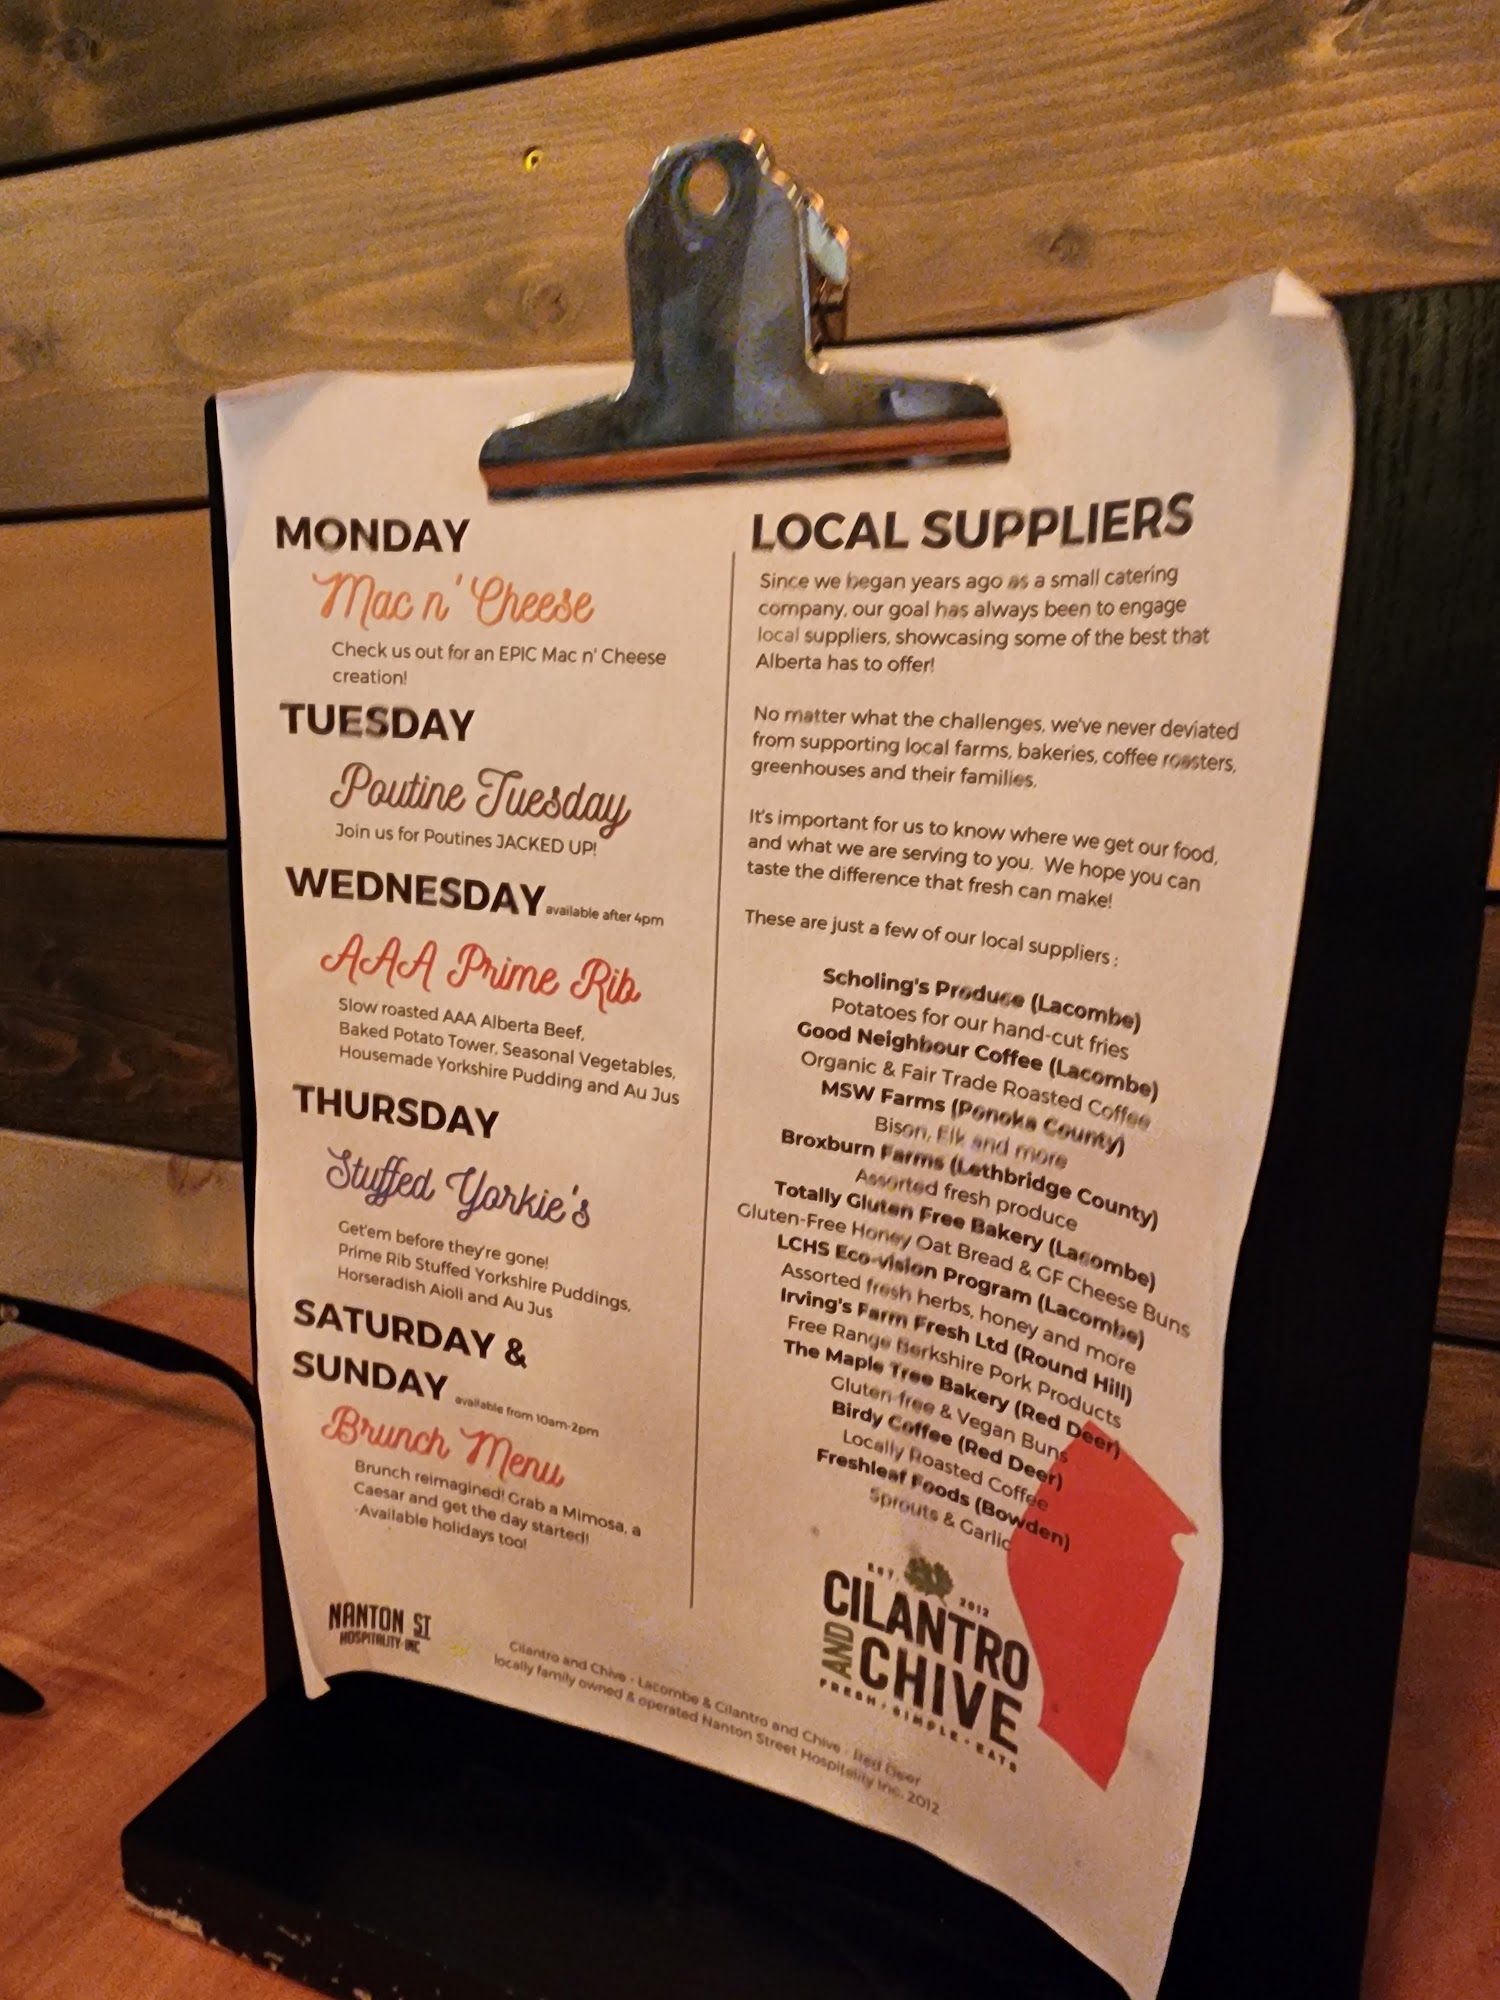 MONDAY
Mac n' Cheese
Check us out for an EPIC Mac n' Cheese
creation!
TUESDAY
Poutine Tuesday
Join us for Poutines JACKED UP!
WEDNESDAY available after 4pm
AAA Prime Rib
Slow roasted AAA Alberta Beef,
Baked Potato Tower, Seasonal Vegetables,
Housemade Yorkshire Pudding and Au Jus
THURSDAY
Stuffed Yorkie's
Get'em before they're gone!
Prime Rib Stuffed Yorkshire Puddings,
Horseradish Aioli and Au Jus
SATURDAY &
SUNDAY available from 10am-2pm
Brunch Menu
Brunch reimagined! Grab a Mimosa, a
Caesar and get the day started!
-Available holidays too!
NANTON ST
HOSPITALITY INC
LOCAL SUPPLIERS
Since we began years ago as a small catering
company, our goal has always been to engage
local suppliers, showcasing some of the best that
Alberta has to offer!
No matter what the challenges, we've never deviated
from supporting local farms, bakeries, coffee roasters,
greenhouses and their families.
It's important for us to know where we get our food,
and what we are serving to you. We hope you can
taste the difference that fresh can make!
These are just a few of our local suppliers :
Scholing's Produce (Lacombe)
Potatoes for our hand-cut fries
Good Neighbour Coffee (Lacombe)
Organic & Fair Trade Roasted Coffee
MSW Farms (Ponoka County)
Bison, Elk and more
Broxburn Farms (Lethbridge County)
Assorted fresh produce
Totally Gluten Free Bakery (Lacombe)
Gluten-Free Honey Oat Bread & GF Cheese Buns
LCHS Eco-vision Program (Lacombe)
Assorted fresh herbs, honey and more
Irving's Farm Fresh Ltd (Round Hill)
Free Range Berkshire Pork Products
The Maple Tree Bakery (Red Deer)
Gluten-free & Vegan Buns
Birdy Coffee (Red Deer)
Locally Roasted Coffee
Freshleaf Foods (Bowden)
Sprouts & Garlic
EST. 2012
CILANTRO
AND CHIVE
FRESH • SIMPLE • EATS
Cilantro and Chive - Lacombe & Cilantro and Chive - Red Deer
locally family owned & operated Nanton Street Hospitality Inc. 2012